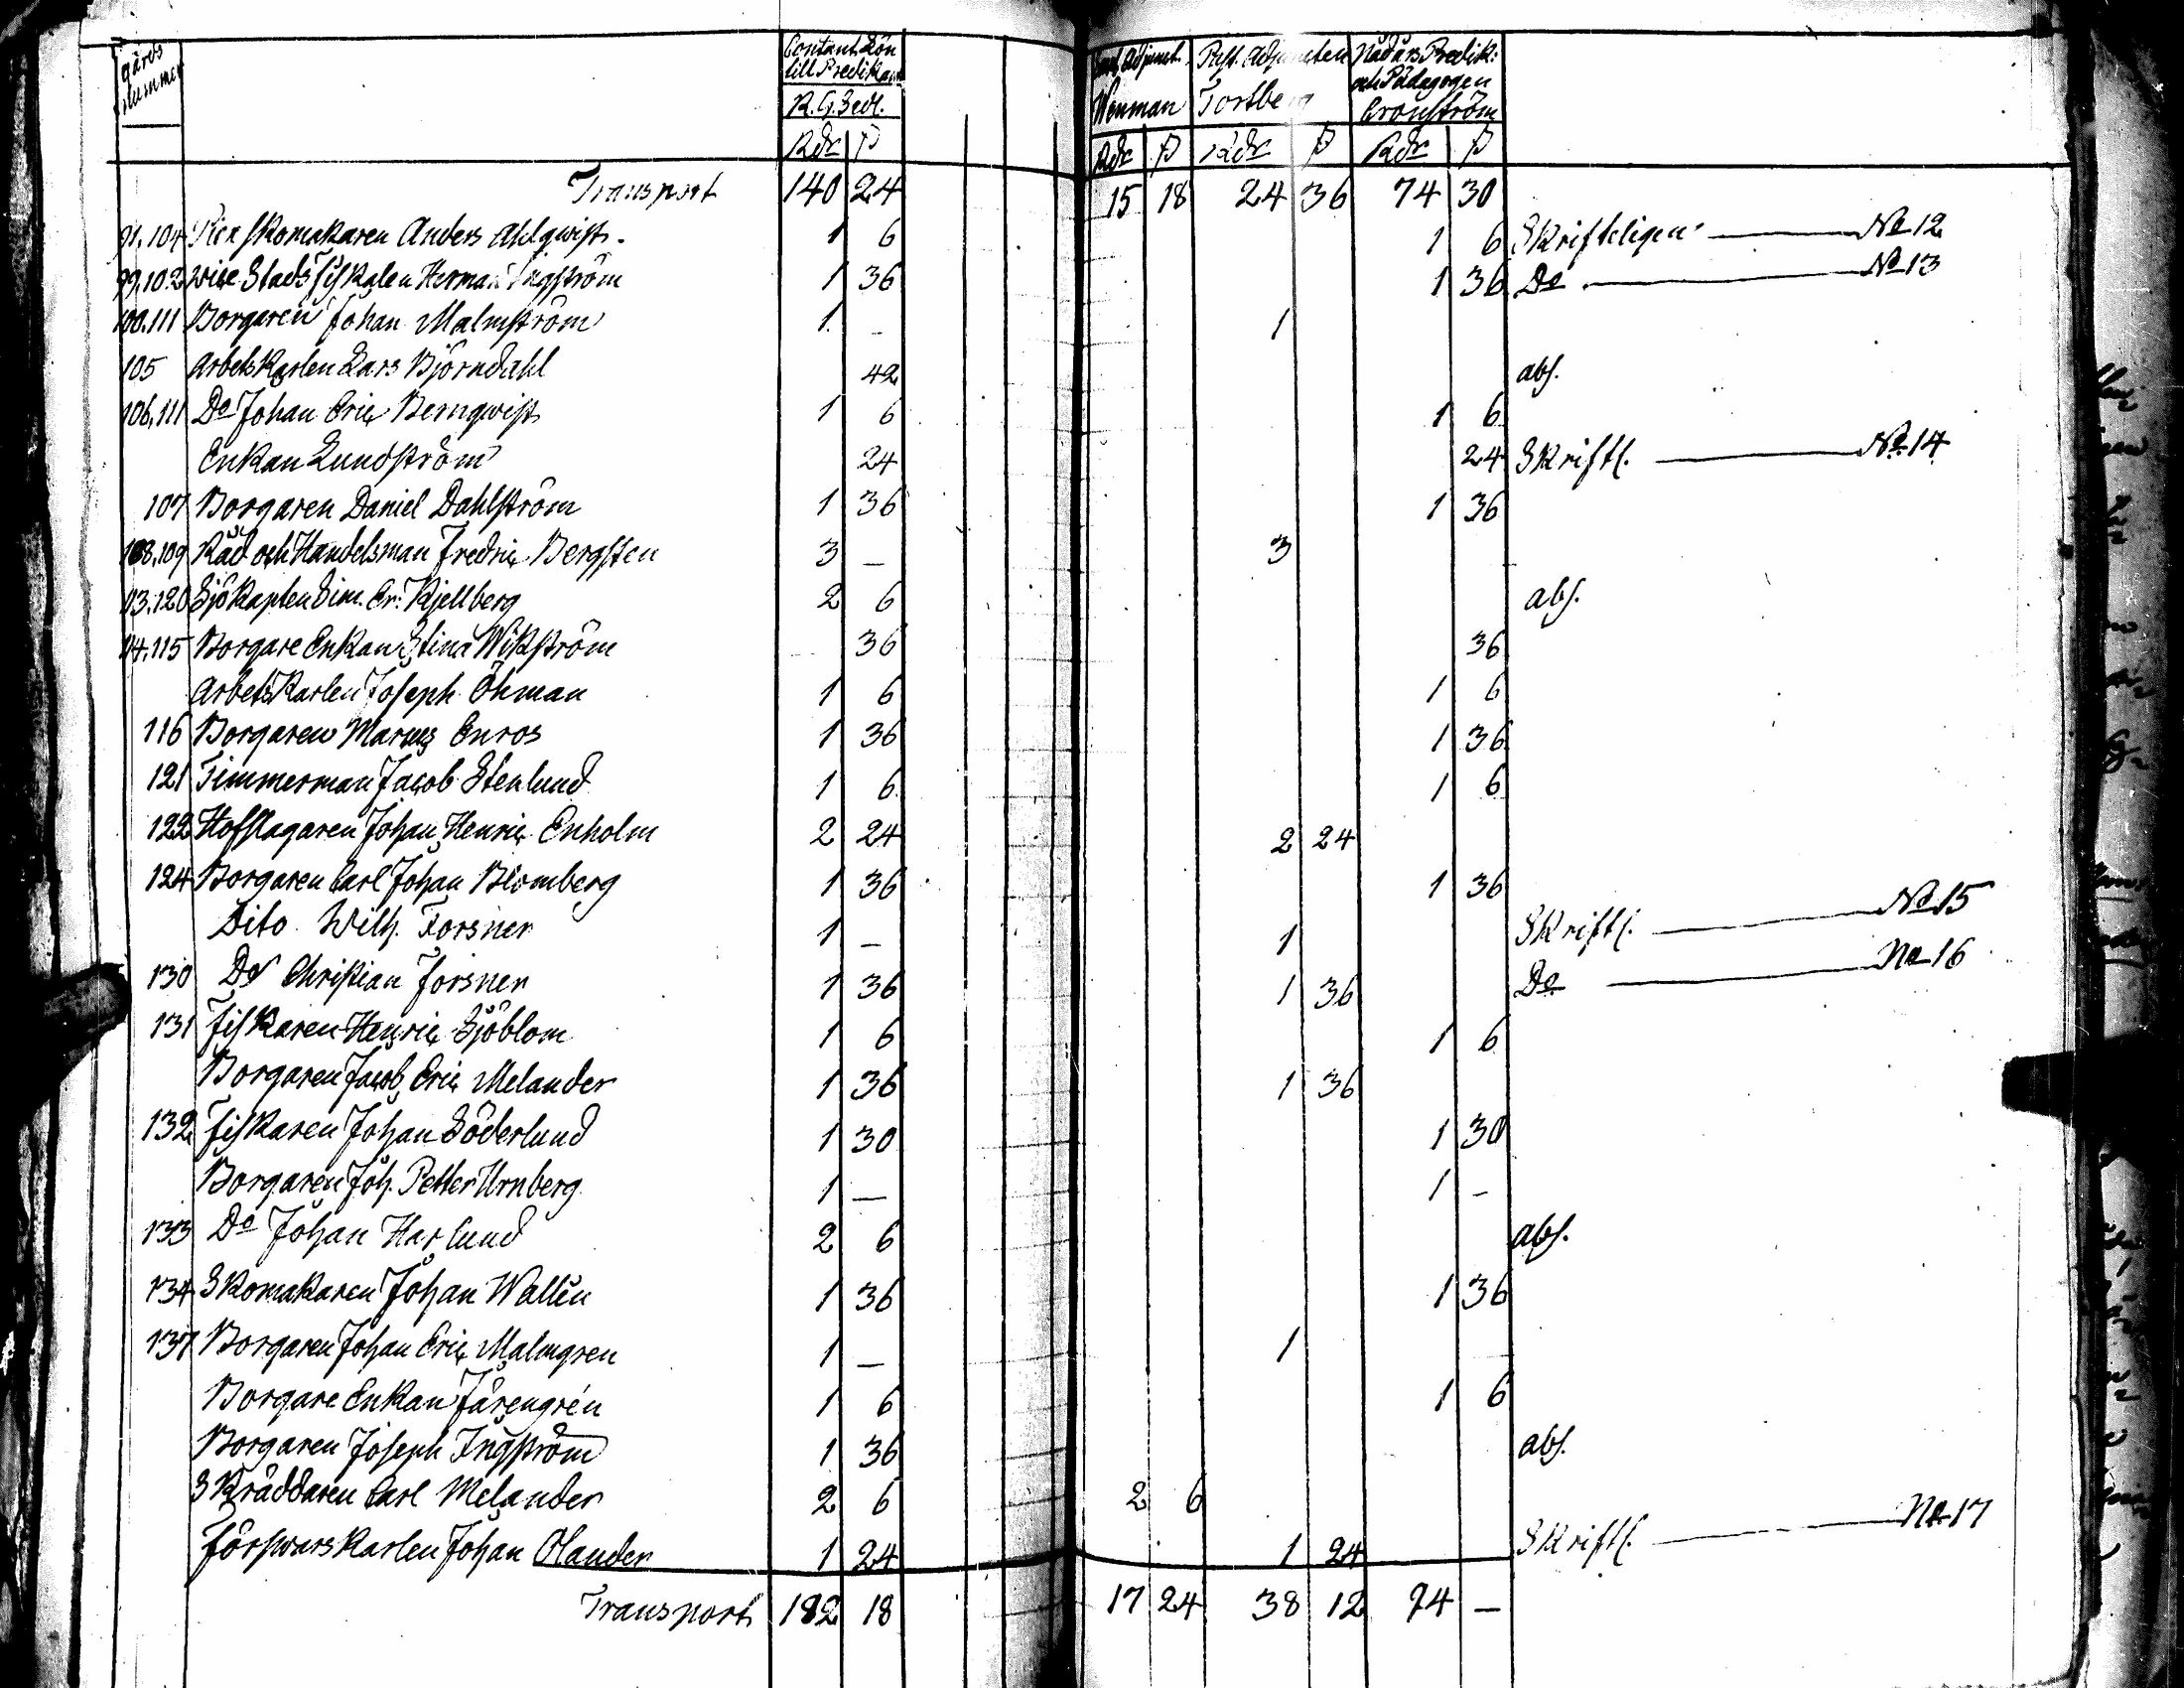 gårds nummer
Contant Lön till Predikant
R. G. Sedl.
Rdr ß
Adjunct. Wenman
Past. Adjuncten Fortberg
Nådårs Predik: och Pädagogen Cronström
Rdr ß Rdr ß Rdr ß
Transport 140 24 15 18 24 36 74 30
91.104 skomakaren Anders Ahlqwist. 1 6 1 6 Skrifteligen No 12
99.102 wice Stads fiskalen Herman Ingström 1 36 1 36 Do No 13
100.111 Borgaren Johan Malmström 1 - 1
105 Arbetskarlen Lars Björndahl 42 abs.
106.111 Do Johan Eric Bernqwist 1 6 1 6
Enkan Lundström 24 24 Skriftl. No 14
107 Borgaren Daniel Dahlström 1 36 1 36
108.109 Råd och Handelsman Fredric Bergsten 3 - 3
113.120 Sjökapten Sim. Er. Kjellberg 2 6 abs.
114.115 Borgare Enkan Stina Wikström 36 36
Arbetskarlen Joseph Öhman 1 6 1 6
116 Borgaren Marcus Enros 1 36 1 36
121 Timmerman Jacob Stenlund 1 6 1 6
122 Hofslagaren Johan Henric Enholm 2 24 2 24
124 Borgaren Carl Johan Blomberg 1 36 1 36
Dito Wilh. Forsner 1 - 1 Skriftl. No 15
130 Do Christian Forsner 1 36 1 36 Do No 16
131 Fiskaren Henric Sjöblom 1 6 1 6
Borgaren Jacob Eric Melander 1 36 1 36
132 Fiskaren Johan Söderlund 1 30 1 30
Borgaren Joh. Petter Urnberg 1 - 1 -
133 Do Johan Haglund 2 6 abs.
134 Skomakaren Johan Wallin 1 36 1 36
137 Borgaren Johan Eric Malmgren 1 - 1
Borgare Enkan Färengrén 1 6 1 6
Borgaren Joseph Ingström 1 36 abs.
Skräddaren Carl Melander 2 6 2 6
Förswarskarlen Johan Olander 1 24 1 24 Skriftl. No 17
Transport 182 18 17 24 38 12 94 -